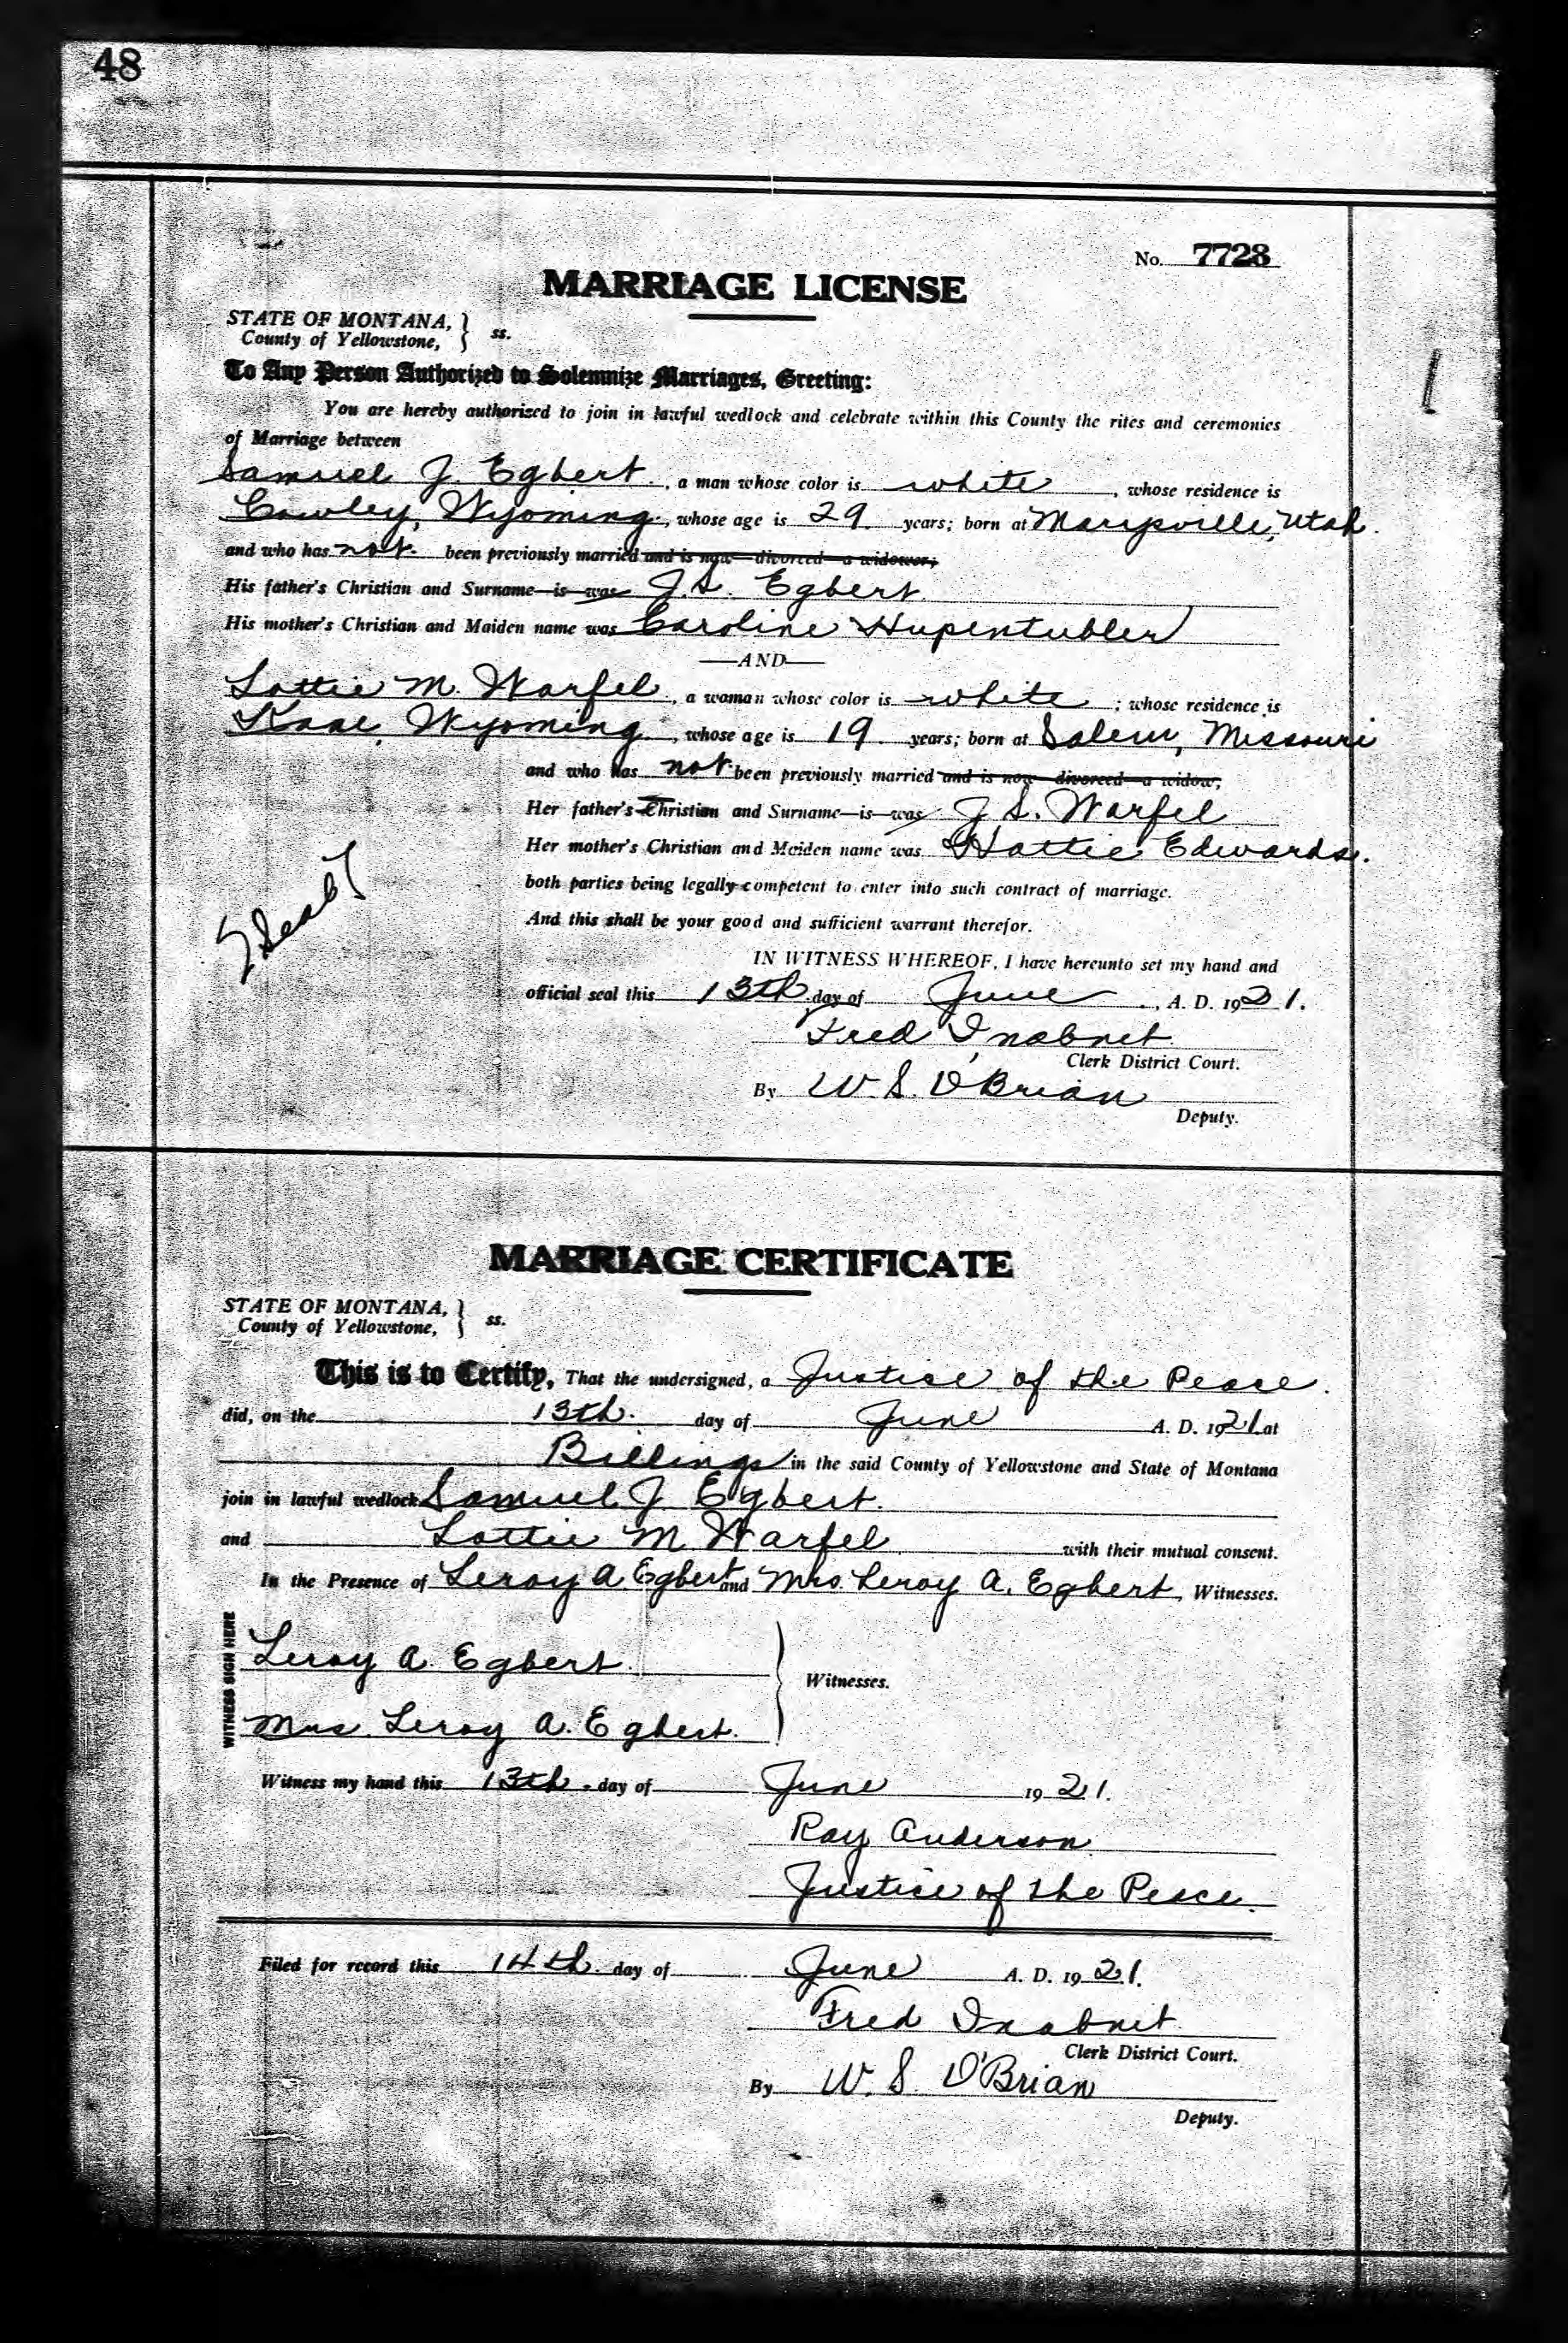 48
No. 7728
MARRIAGE LICENSE
STATE OF MONTANA, } ss.
County of Yellowstone,
To Any Person Authorized to Solemnize Marriages, Greeting:
You are hereby authorized to join in lawful wedlock and celebrate within this County the rites and ceremonies
of Marriage between
Samuel J. Egbert, a man whose color is white, whose residence is
Cowley, Wyoming, whose age is 29 years; born at Marysville, Utah.
and who has not been previously married and is now divorced a widower;
His father's Christian and Surname is was J. S. Egbert
His mother's Christian and Maiden name was Caroline Hupentubler
AND
Lottie M. Warfel, a woman whose color is white; whose residence is
Kane, Wyoming, whose age is 19 years; born at Salem, Missouri
and who has not been previously married and is now divorced a widow,
Her father's Christian and Surname is was J S. Warfel
Her mother's Christian and Maiden name was Hattie Edwards.
both parties being legally competent to enter into such contract of marriage.
{Seal}
And this shall be your good and sufficient warrant therefor.
IN WITNESS WHEREOF, I have hereunto set my hand and
official seal this 13th day of June, A. D. 1921.
Fred Inabnet
Clerk District Court.
By W. S. O'Brian
Deputy.
MARRIAGE CERTIFICATE
STATE OF MONTANA, } ss.
County of Yellowstone,
This is to Certify, That the undersigned, a Justice of the Peace.
did, on the 13th. day of June A. D. 1921 at
Billings in the said County of Yellowstone and State of Montana
join in lawful wedlock Samuel J Egbert.
and Lottie M Warfel with their mutual consent.
In the Presence of Leroy A. Egbert and Mrs. Leroy A. Egbert, Witnesses.
WITNESS SIGN HERE
Leroy A. Egbert.
Witnesses.
Mrs. Leroy A. Egbert.
Witness my hand this 13th. day of June 1921.
Ray Anderson
Justice of the Peace.
Filed for record this 14th. day of June A. D. 1921.
Fred Inabnet
Clerk District Court.
By W. S. O'Brian
Deputy.